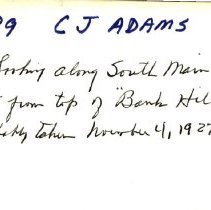 99 C J ADAMS
Looking along South Main
from top of "Bank Hil
taken November 4, 192